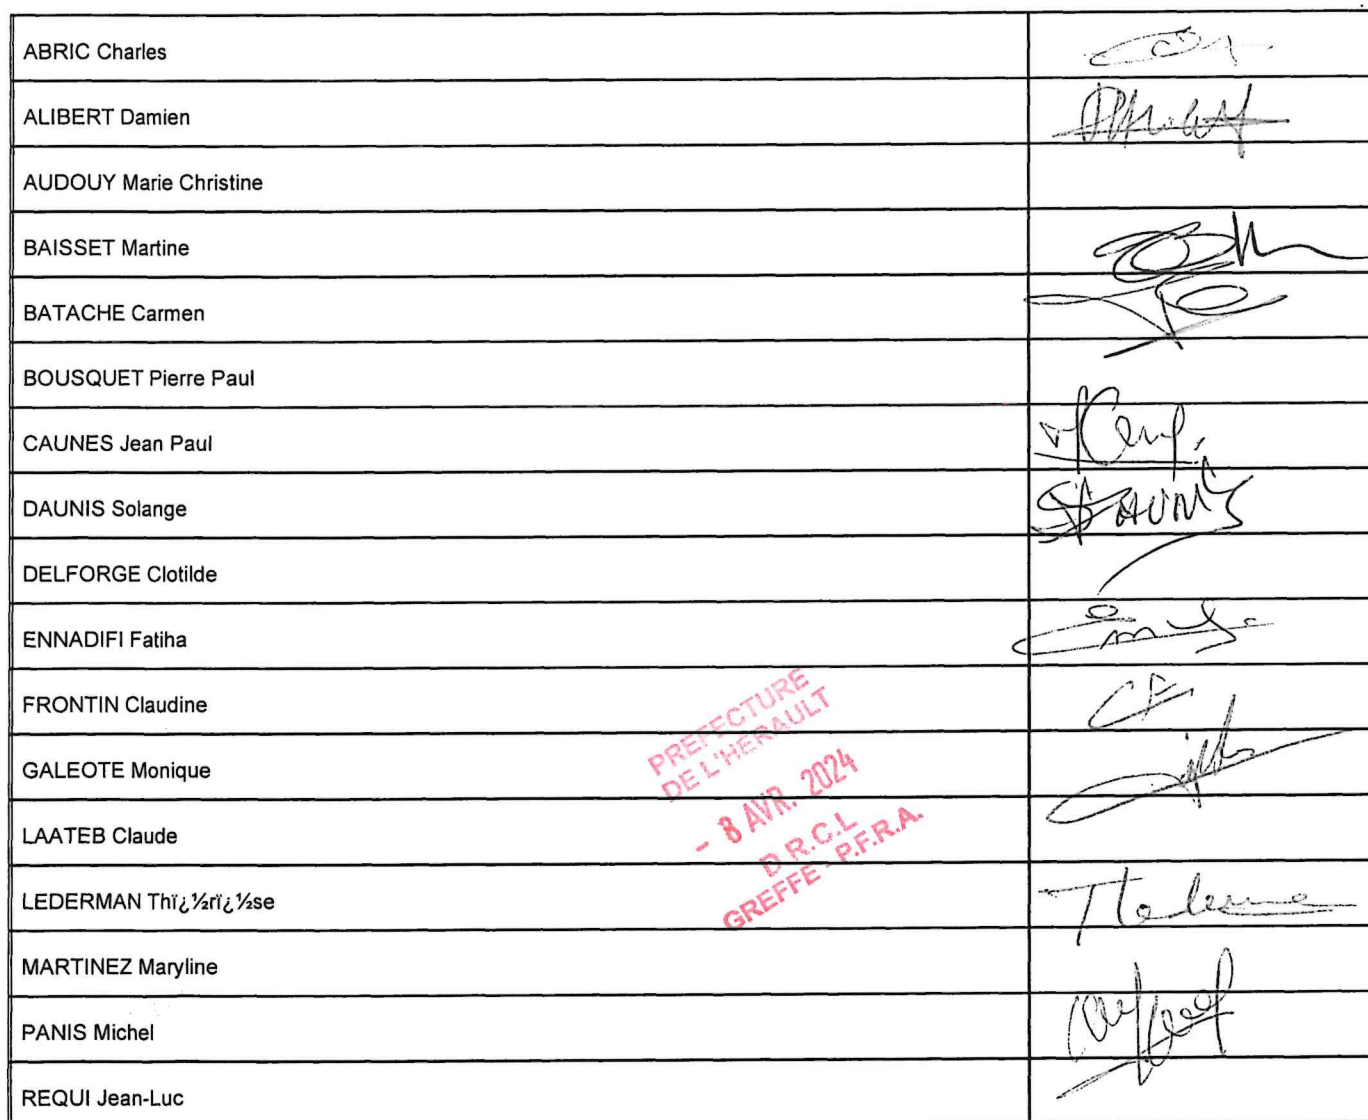 ABRIC Charles
ALIBERT Damien
AUDOUY Marie Christine
BAISSET Martine
BATACHE Carmen
BOUSQUET Pierre Paul
CAUNES Jean Paul
DAUNIS Solange
DELFORGE Clotilde
ENNADIFI Fatiha
FRONTIN Claudine
GALEOTE Monique
LAATEB Claude
LEDERMAN Thï¿½rï¿½se
MARTINEZ Maryline
PANIS Michel
REQUI Jean-Luc
PREFECTURE
DE L'HERAULT
- 8 AVR. 2024
D.R.C.L
GREFFE - P.F.R.A.